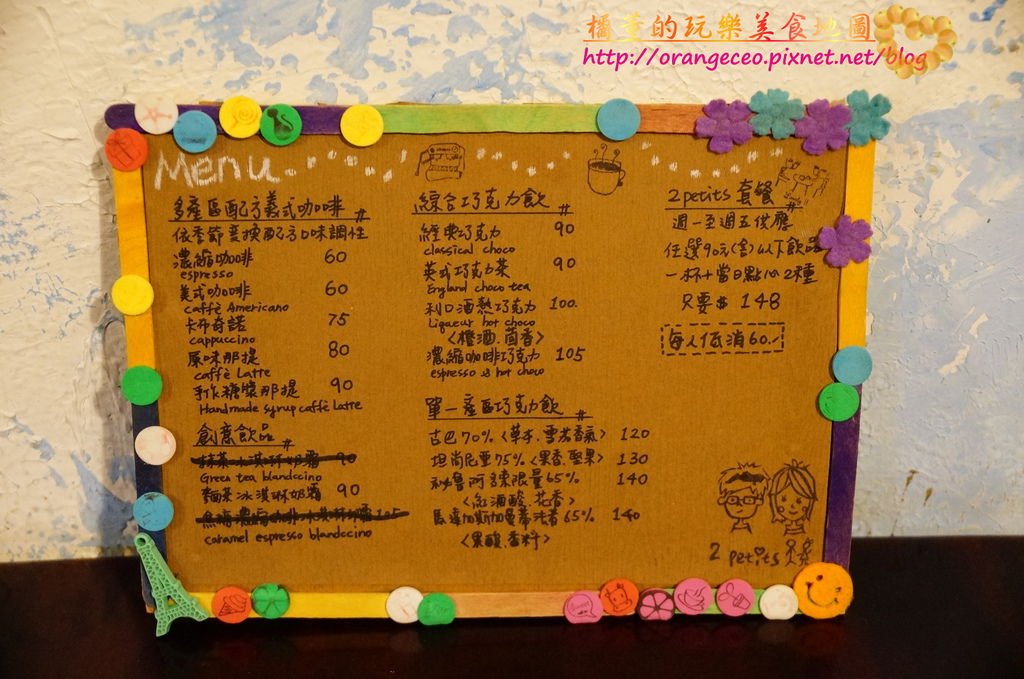 橘董的玩樂美食地圖
http://orangeceo.pixnet.net/blog
Menu
多產區配方義式咖啡
依季節變換配方口味調性
濃縮咖啡 60
espresso
美式咖啡 60
Caffè Americano
卡布奇諾 75
cappuccino
原味那提 80
caffè Latte
手作糖漿那提 90
Handmade syrup caffè Latte
創意飲品
抹茶冰淇淋奶霜 90
Green tea blandccino
麵茶冰淇淋奶霜 90
焦糖濃縮咖啡冰淇淋奶霜 105
caramel espresso blandccino
綜合巧克力飲
經典巧克力 90
classical choco
英式巧克力茶 90
England choco tea
利口酒熱巧克力 100.
Liqueur hot choco
<橙酒.茴香>
濃縮咖啡巧克力 105
espresso & hot choco
單一產區巧克力飲
古巴70%<草本.雪茄香氣> 120
坦尚尼亞75%<果香.堅果> 130
秘魯阿 限量65% 140
<紅酒酸.花香>
馬達加斯加曼 65% 140
<果酸.香料>
2petits 套餐
週一至週五供應
任選90元(含)以下飲品
一杯+當日點心2種
只要$ 148
每人低消60.
2 petits